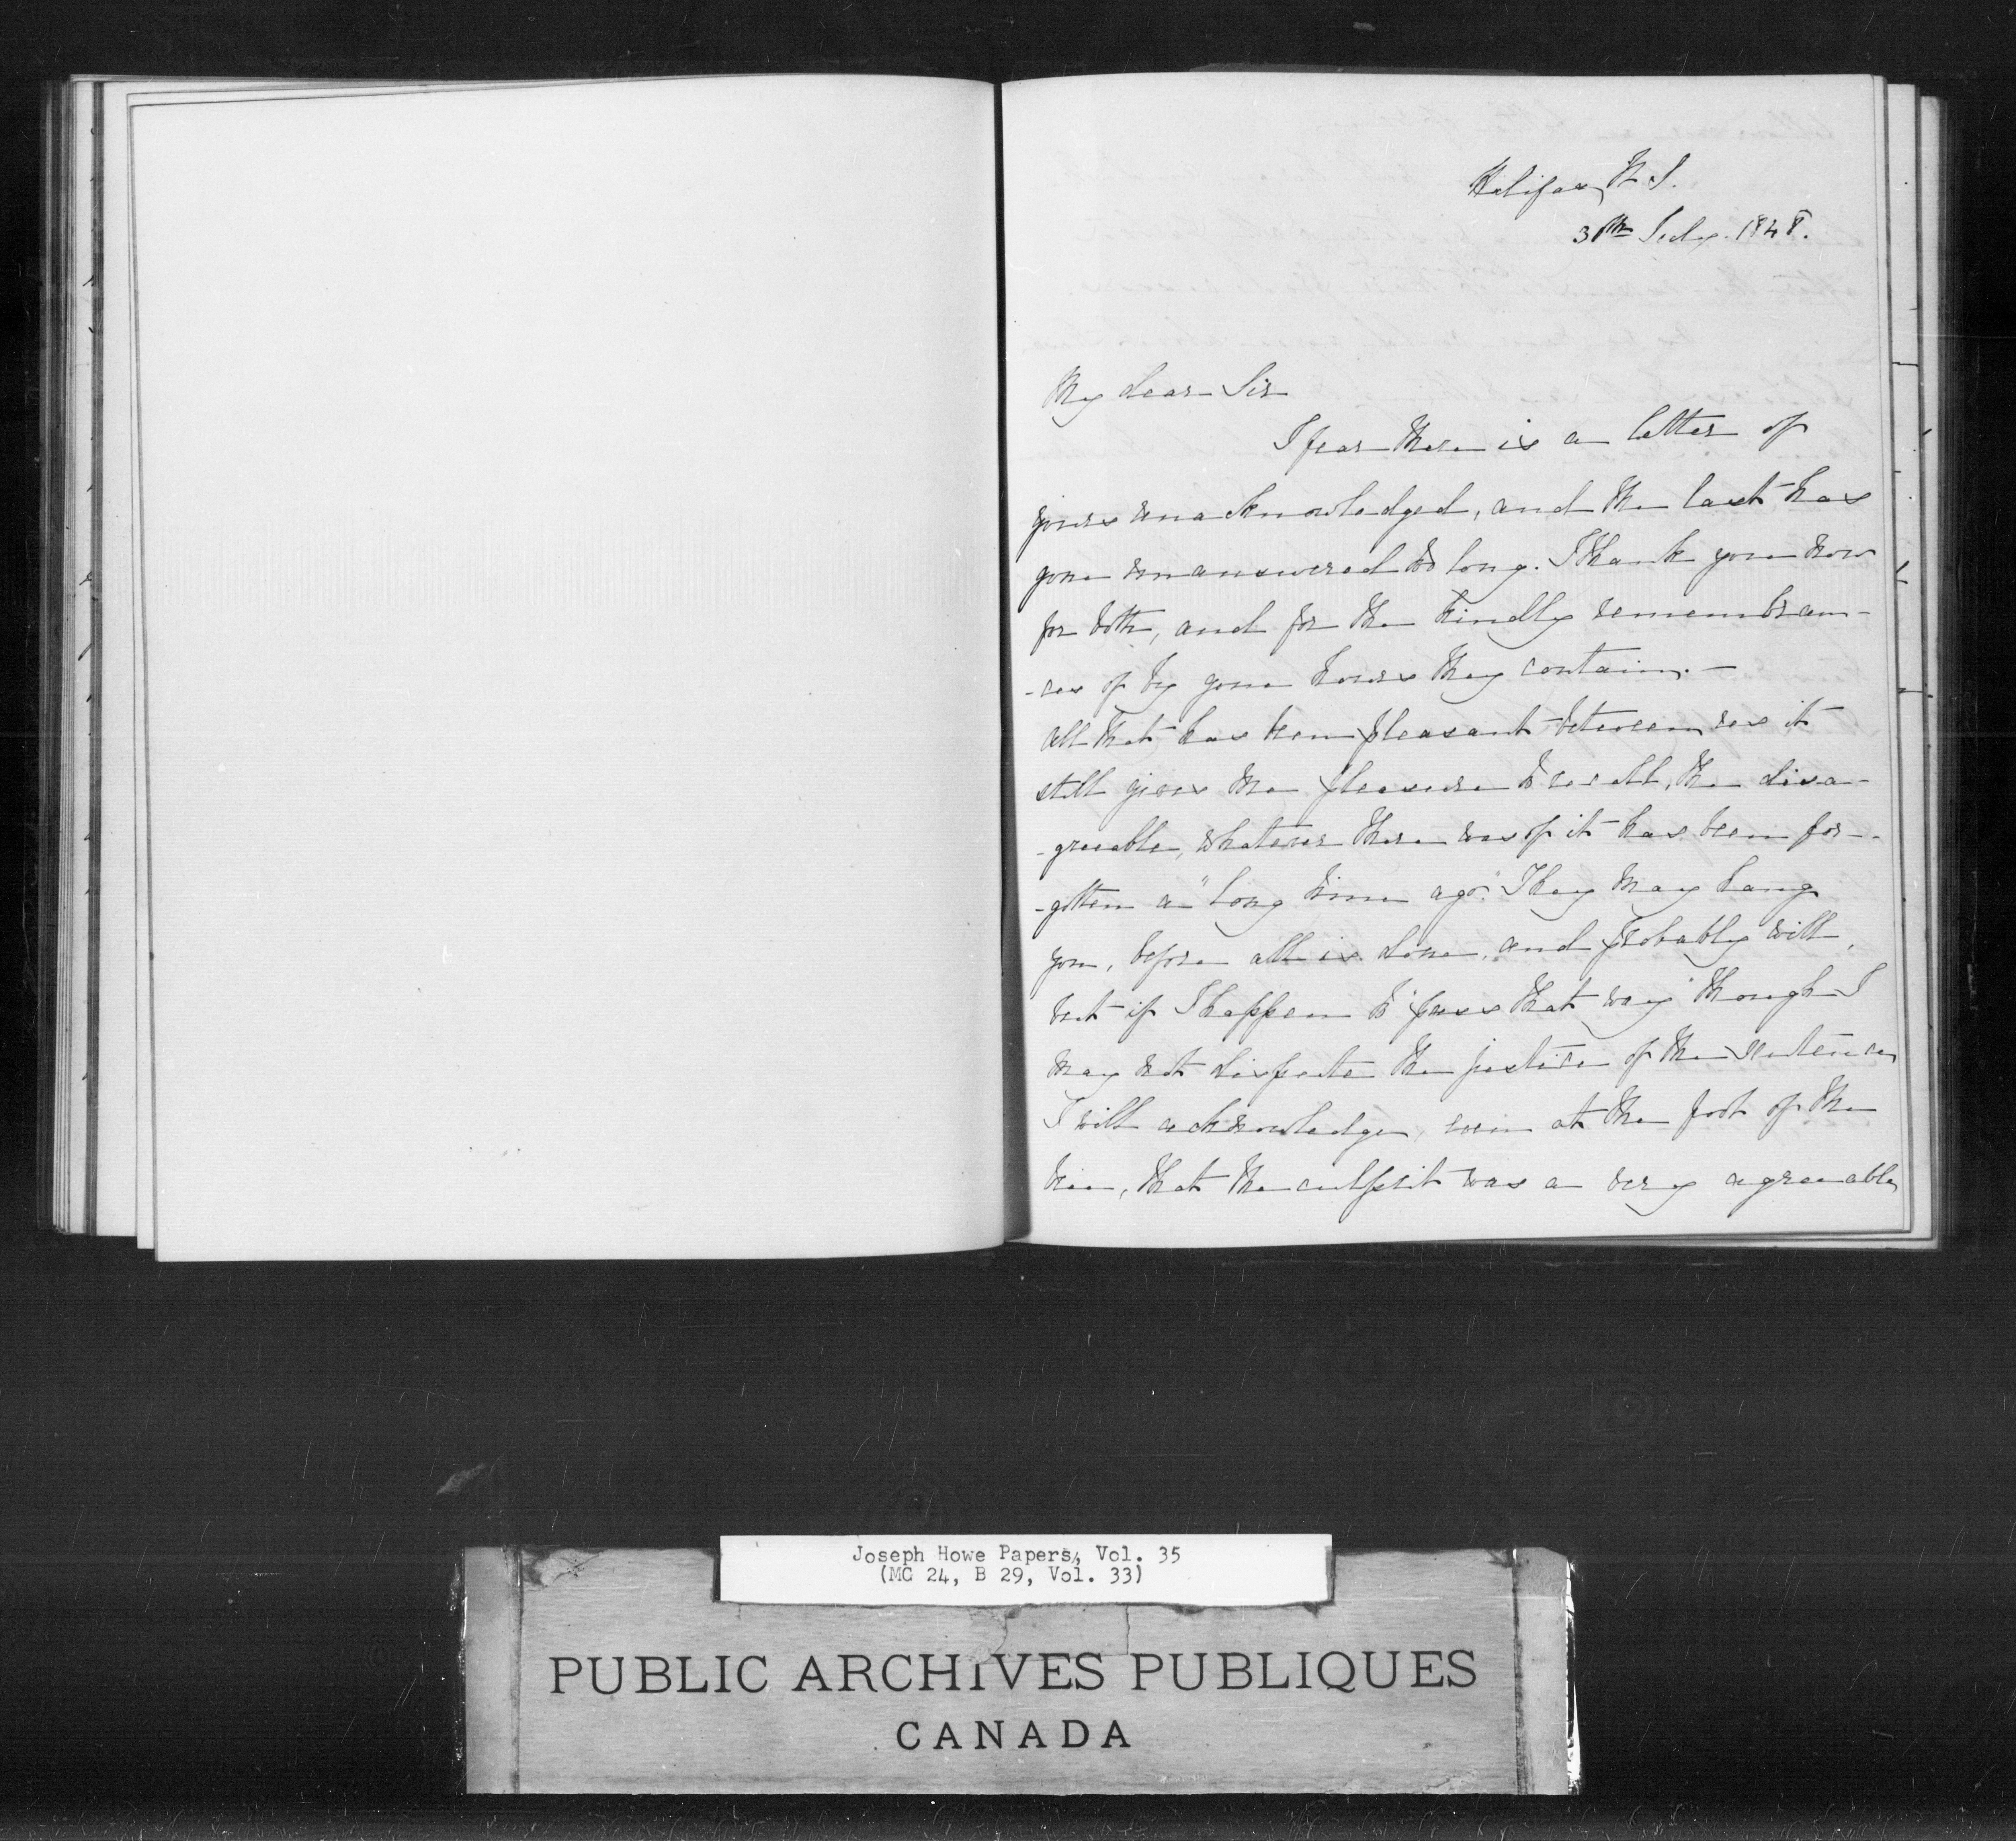 Halifax, N S.
31st July. 1848.
My dear Sir
I fear there is a letter of
yours unacknowledged, and the last has
gone unanswered too long. I thank you now
for both, and for the kindly remembran-
-ces of by gone hours they contain.—
All that has been pleasant between us it
still gives me pleasure to recall, the disa-
-greeable, whatever there was of it has been for-
-gotten a "long time ago." They may hang
you, before all is done, and probably will,
but if I happen to "pass that way" though I
may not dispute the justice of the sentence
I will acknowledge, even at the foot of the
tree, that the culprit was a very agreeable
Joseph Howe Papers, Vol. 35
(MG 24, B 29, Vol. 33)
PUBLIC ARCHIVES PUBLIQUES
CANADA